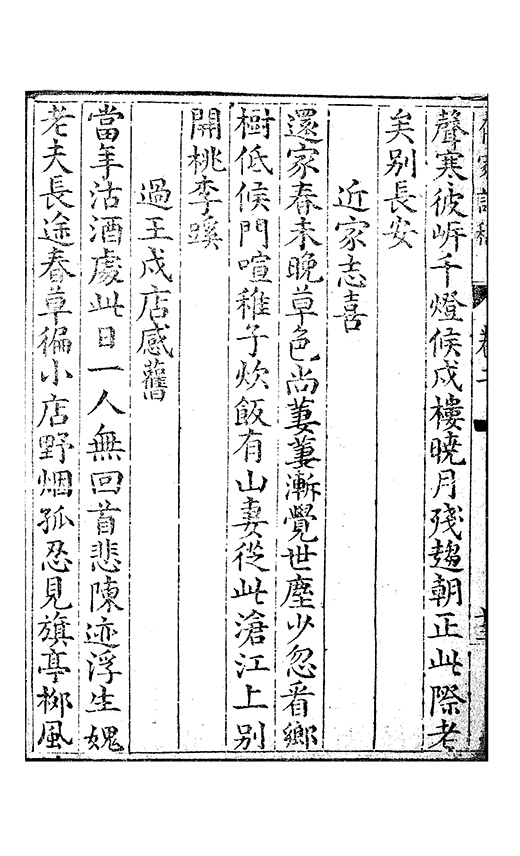 卷二
聲寒彼岍千燈候戍樓曉月殘趨朝正此際老
矣别長安
近家志喜
還家春未晚草色尚萋萋漸覺世塵少忽看鄉
樹低候門喧稚子炊飯有山妻從此滄江上别
開桃李蹊
過王戍店感舊
當年沽酒處此日一人無回首悲陳迹浮生媿
老夫長途春草徧小店野烟孤忍見旗亭柳風